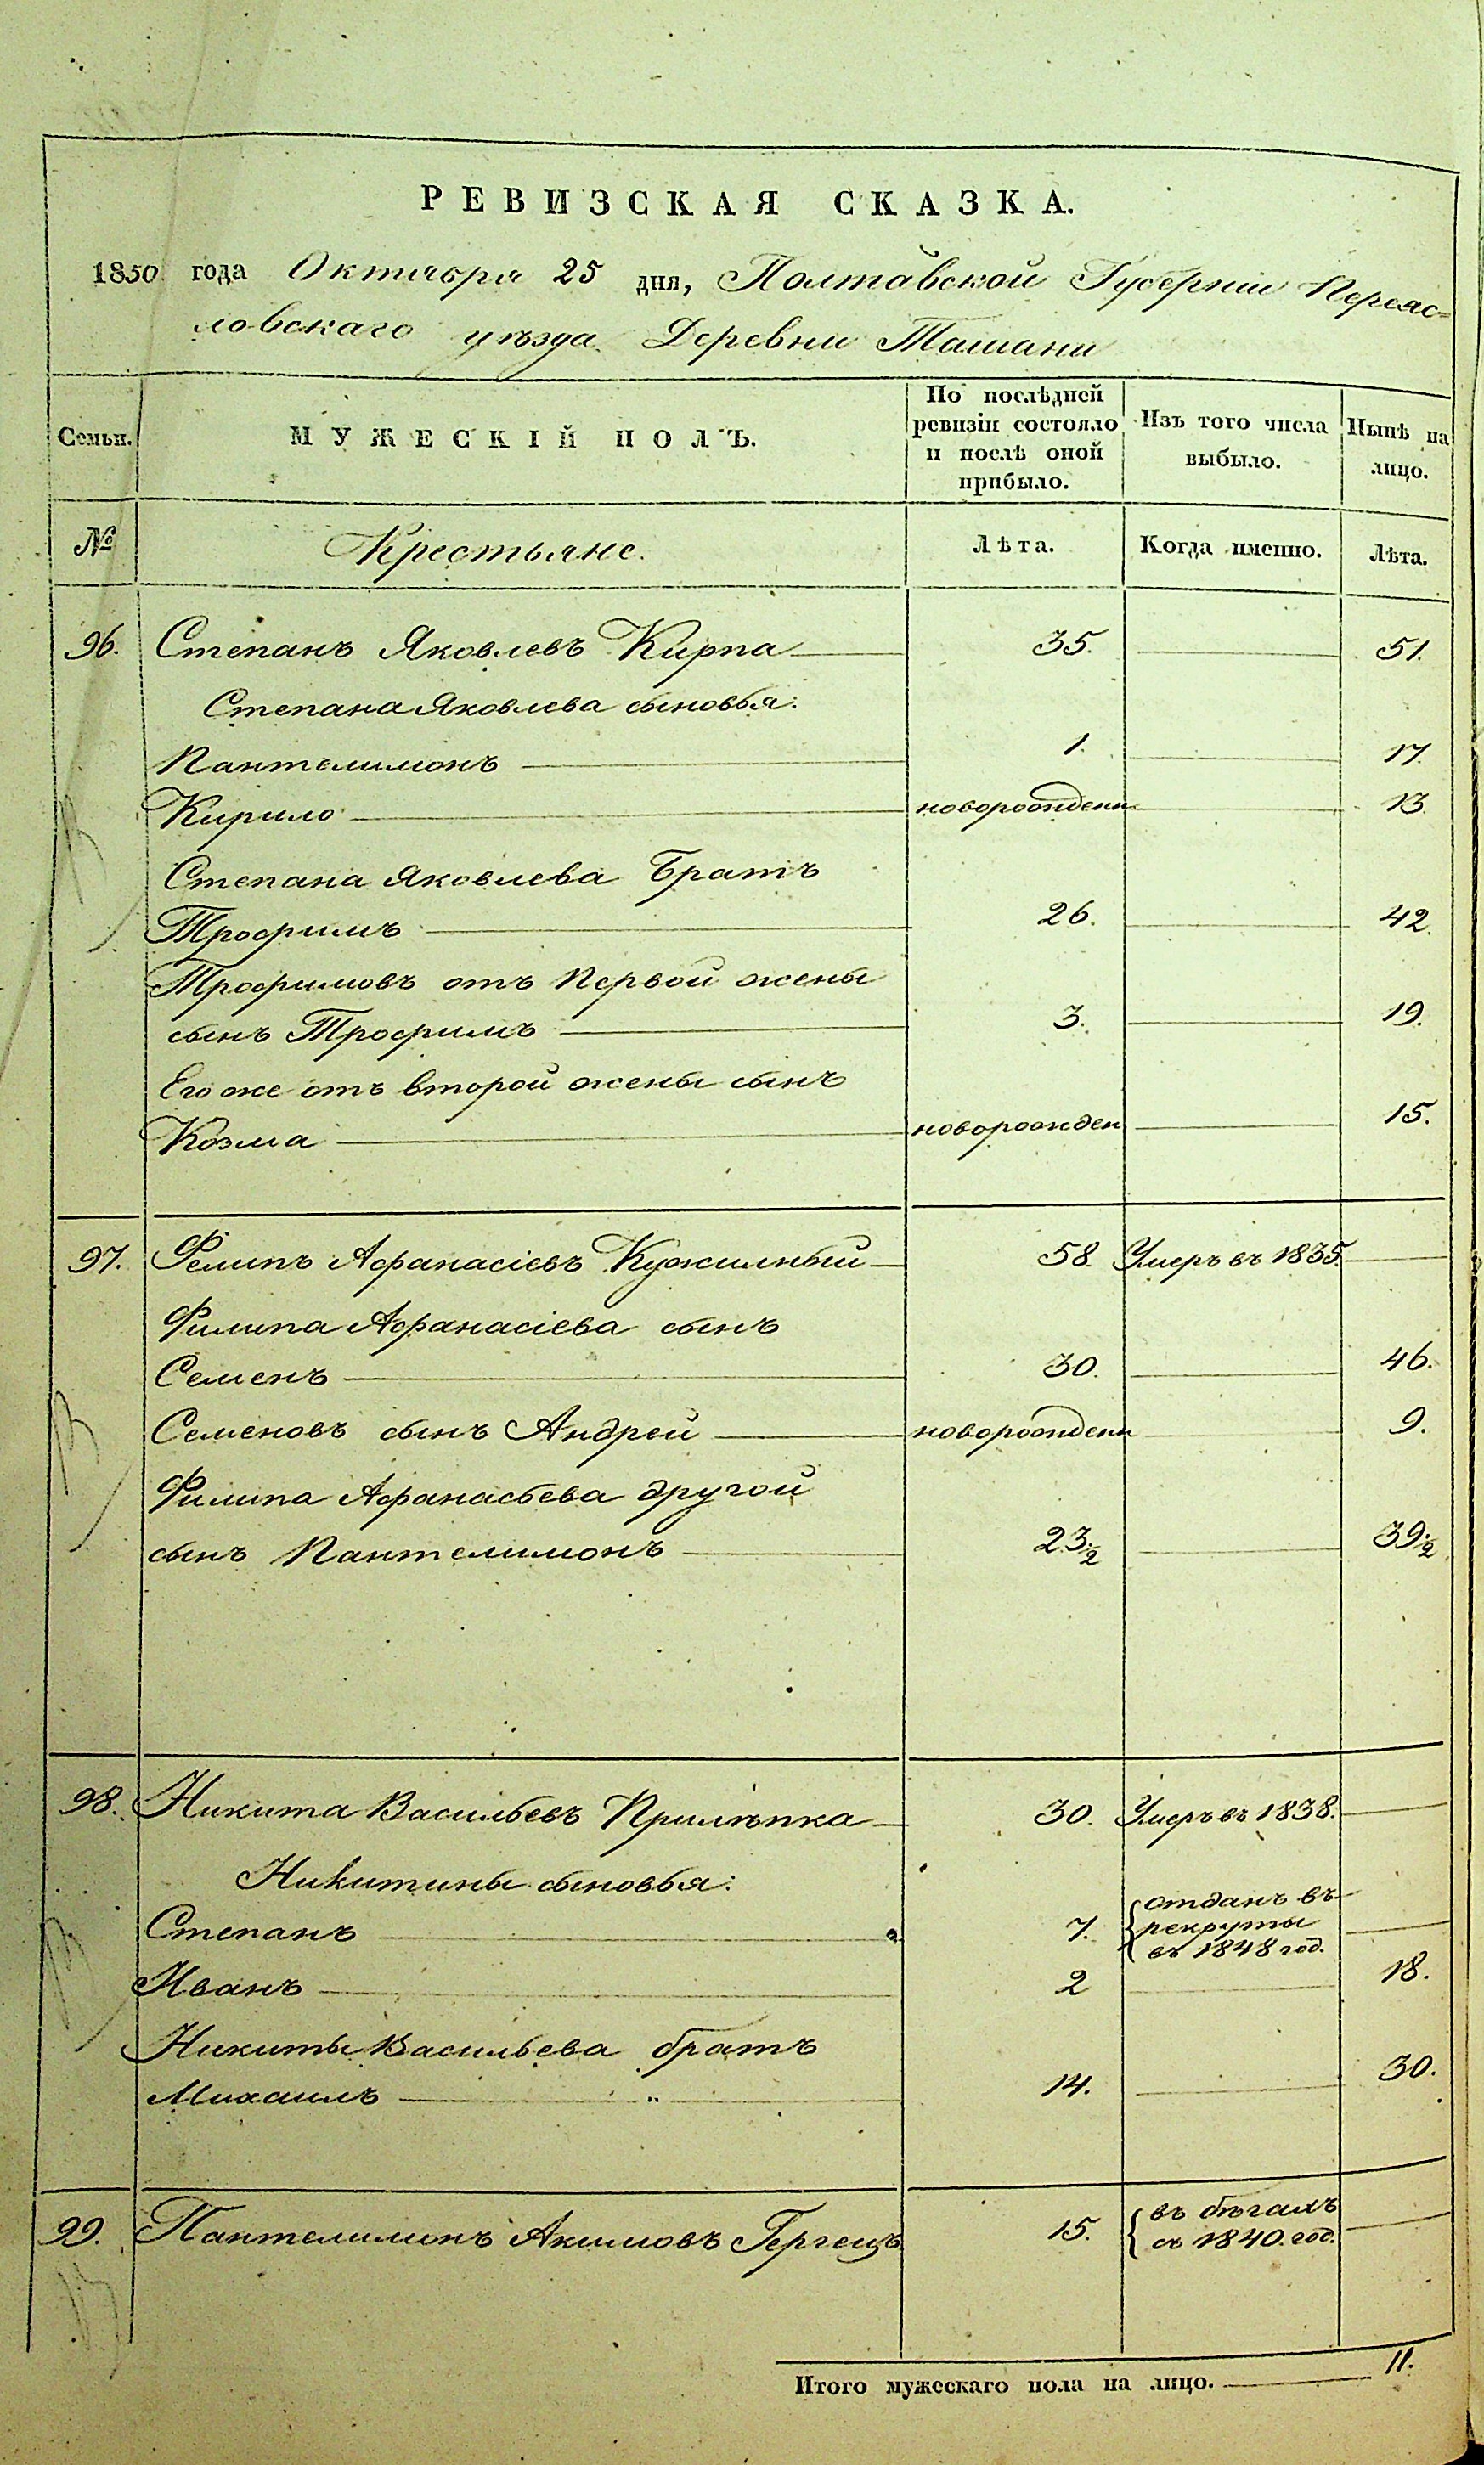 РЕВИЗСКАЯ СКАЗКА.
1850 года Октября 25 дня, Полтавской Губерніи Переяс=
ловскаго уѣзда Деревни Ташани
Семьи. МУЖЕСКІЙ ПОЛЪ. По послѣдней ревизіи состояло и послѣ оной прибыло. Изъ того числа выбыло. Нынѣ на лицо.
№ Крестьяне. Лѣта. Когда именно. Лѣта.
96. Степанъ Яковлевъ Кирпа 35. 51.
Степана Яковлева сыновья:
Пантелимонъ 1. 17.
Кирило новорожденн 13.
Степана Яковлева Братъ
Трофимъ 26. 42.
Трофимовъ отъ Первой жены
сынъ Трофимъ 3. 19.
Его же отъ второй жены сынъ
Козма новорожден 15.
97. Фелипъ Афанасіевъ Кужилный 58. Умеръ въ 1835.
Филипа Афанасіева сынъ
Семенъ 30. 46.
Семеновъ сынъ Андрей новорожденн 9.
Филипа Афанасьева другой
сынъ Пантелимонъ 23 1/2 39 1/2
98. Никита Васильевъ Прилѣпка 30. Умеръ въ 1838.
Никитины сыновья:
Степанъ 7. отданъ въ
рекруты
въ 1848 год.
Иванъ 2 18.
Никиты Васильева братъ
Михаилъ " 14. 30.
99. Пантелимонъ Акимовъ Гергецъ 15. въ бѣгахъ
съ 1840. год.
Итого мужескаго пола на лицо. 11.